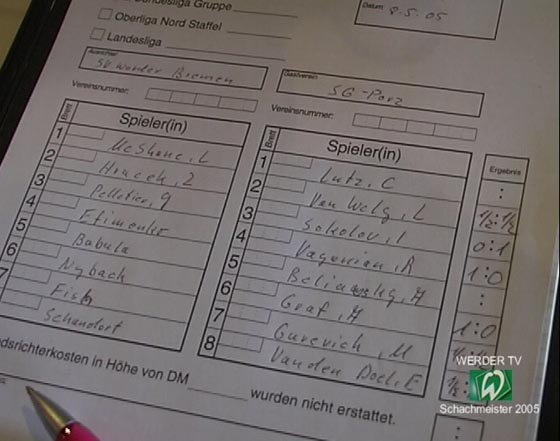 Bundesliga Gruppe
Oberliga Nord Staffel
Landesliga
Datum 8.5.05
Ausrichter
SV Werder Bremen
Gastverein
SG-Porz
Vereinsnummer:
Vereinsnummer:
Brett Spieler(in)
Brett Spieler(in)
Ergebnis
1 McShane, L
1 Lutz, C
:
2 Hracek, Z
2 Van Wely, L
½:½
3 Pelletier, Y
3 Sokolov, I
0:1
4 Efimenko
4 Vaganian, R
1:0
5 Babula
5 Beliavsky, A
:
6 Nyback
6 Graf, A
1:0
7 Fish
7 Gurevich, M
Schandorf
8 Van den Doel, E
½:
dsrichterkosten in Höhe von DM wurden nicht erstattet.
:
WERDER TV
W
Schachmeister 2005